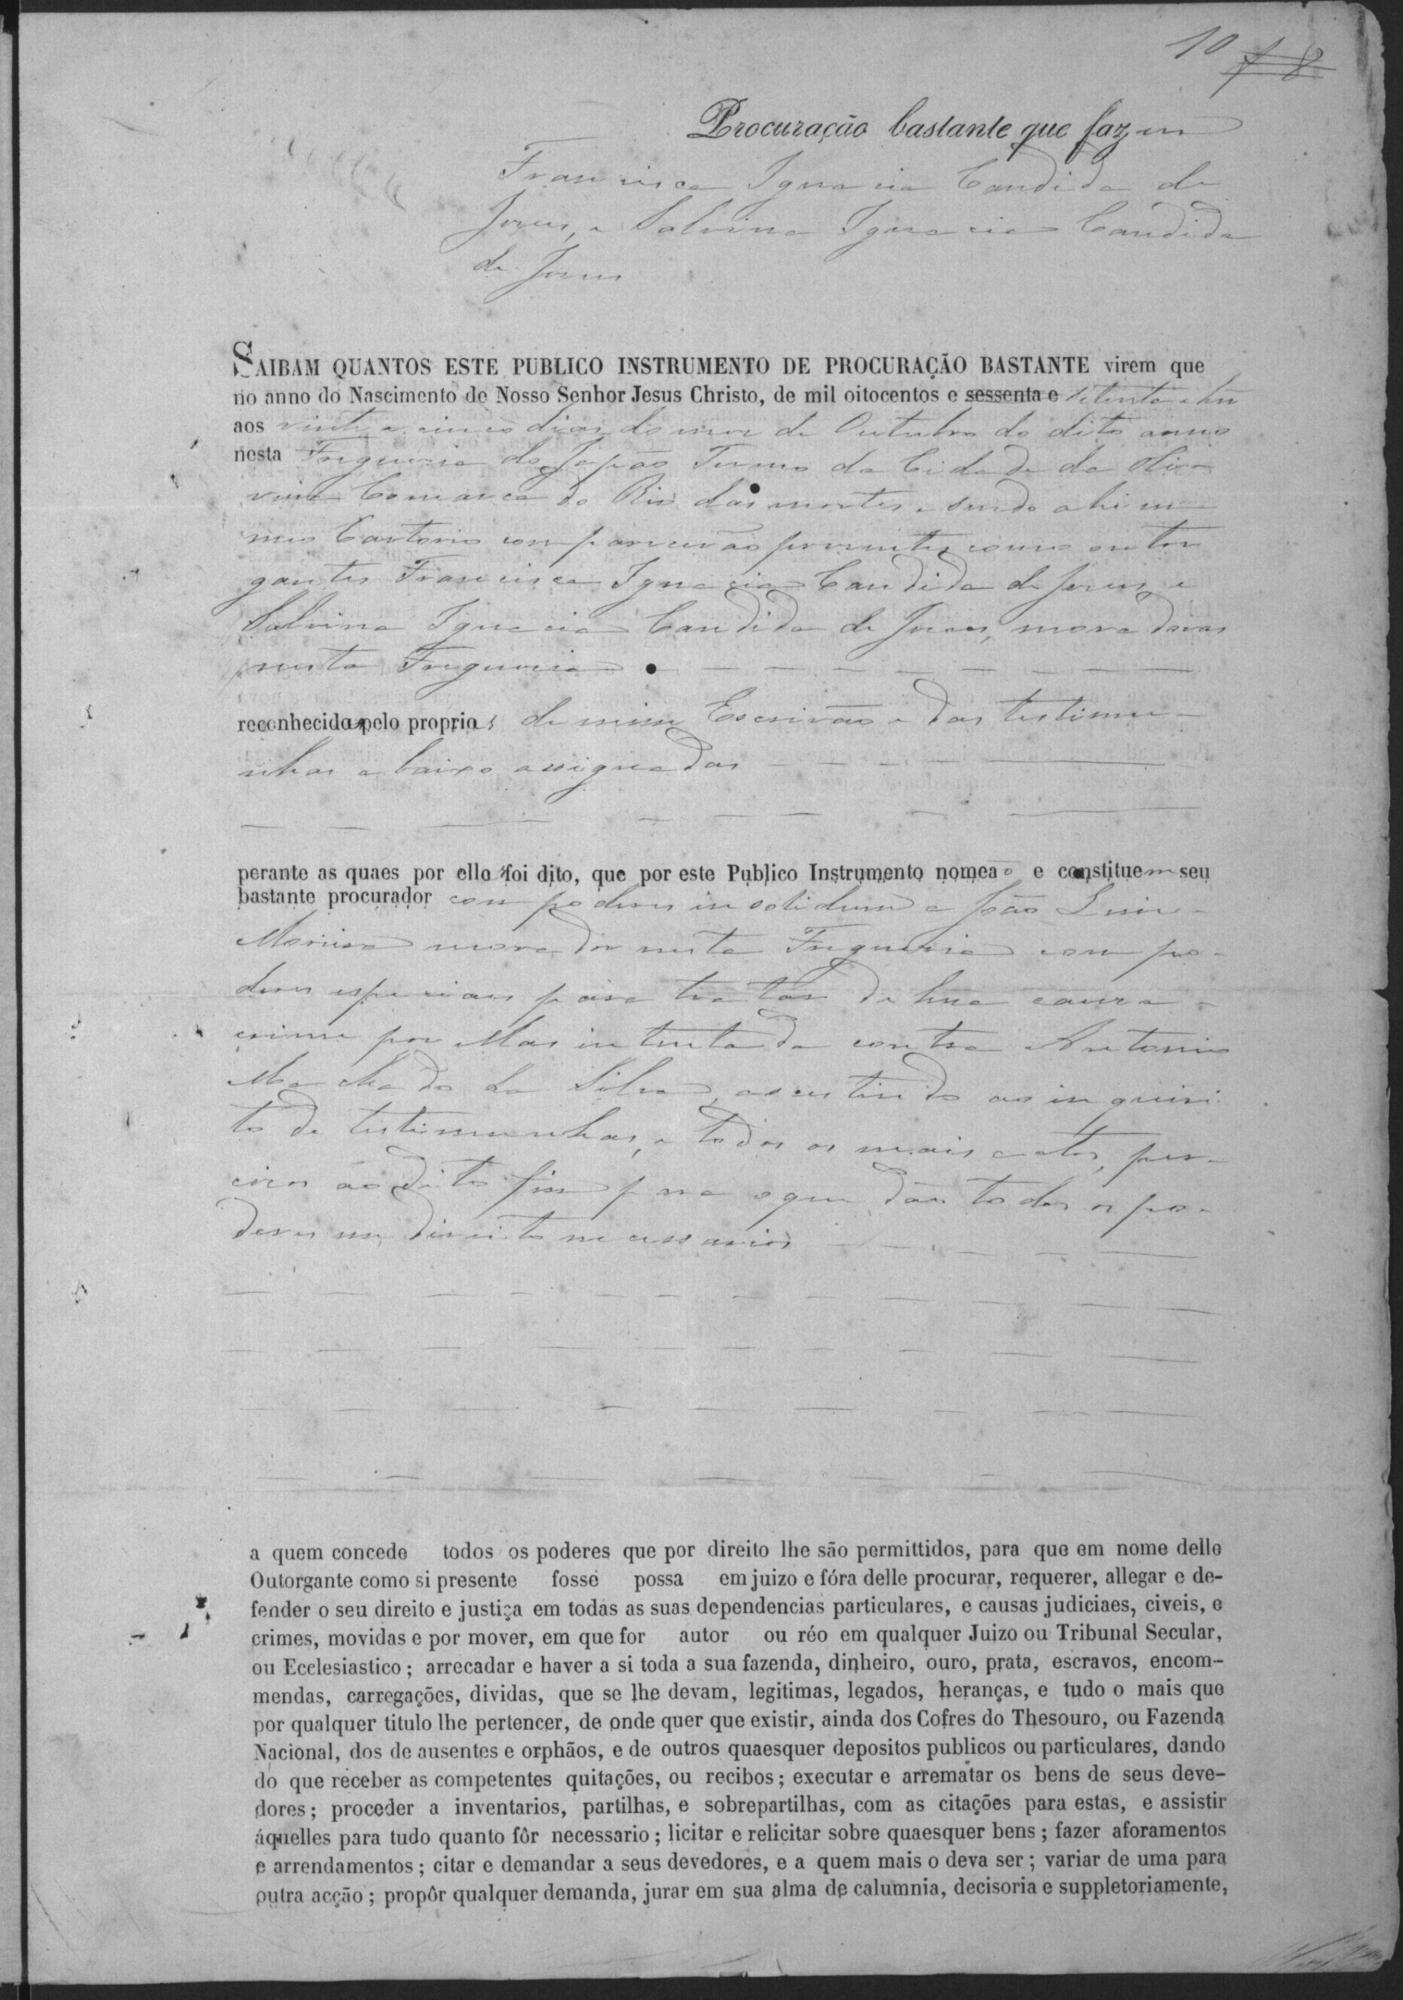 10 7 8
Procuração bastante que fazem
Francisca Ignacia Candida de
Jesus, e Salvina Ignacia Candida
de Jesus
SAIBAM QUANTOS ESTE PUBLICO INSTRUMENTO DE PROCURAÇÃO BASTANTE virem que
no anno do Nascimento de Nosso Senhor Jesus Christo, de mil oitocentos e sessenta e setenta e hum
aos vinte e cinco dias do mes de Outubro do dito anno
nesta Freguesia do Japão Termo da Cidade da Oli-
veira Comarca do Rio das mortes e sendo ahi em
meo Cartorio comparecerão presentes como outor
gantes Francisca Ignacia Candida de Jesus, e
Salvina Ignacia Candida de Jesus, moradoras
nesta Freguesia
reconhecidas pelo proprios de mim Escrivão e das testimu-
nhas abaixo assignadas
perante as quaes por ellas foi dito, que por este Publico Instrumento nomeão e constituem seu
bastante procurador com poderes in solidum a João Luis
Moreira morador nesta Freguesia com po-
deres especiais para tratar de hua causa
crime por ellas intentada contra Antonio
Machado da Silva, ascistindo as inquiri
to de testimunhas, e todos os mais actos, per-
cizos ao dito fim p ra o que dão todos os po-
deres em direito necessarios
a quem concede todos os poderes que por direito lhe são permittidos, para que em nome delle
Outorgante como si presente fosse possa em juizo e fóra delle procurar, requerer, allegar e de-
fender o seu direito e justiça em todas as suas dependencias particulares, e causas judiciaes, civeis, e
crimes, movidas e por mover, em que for autor ou réo em qualquer Juizo ou Tribunal Secular,
ou Ecclesiastico; arrecadar e haver a si toda a sua fazenda, dinheiro, ouro, prata, escravos, encom-
mendas, carregações, dividas, que se lhe devam, legitimas, legados, heranças, e tudo o mais que
por qualquer titulo lhe pertencer, de onde quer que existir, ainda dos Cofres do Thesouro, ou Fazenda
Nacional, dos de ausentes e orphãos, e de outros quaesquer depositos publicos ou particulares, dando
do que receber as competentes quitações, ou recibos; executar e arrematar os bens de seus deve-
dores; proceder a inventarios, partilhas, e sobrepartilhas, com as citações para estas, e assistir
áquelles para tudo quanto fôr necessario; licitar e relicitar sobre quaesquer bens; fazer aforamentos
e arrendamentos; citar e demandar a seus devedores, e a quem mais o deva ser; variar de uma para
outra acção; propôr qualquer demanda, jurar em sua alma de calumnia, decisoria e suppletoriamente,